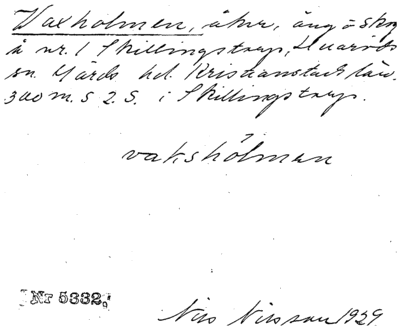 Vaxholmen, åker, äng o skog
å nr. 1 Skillingstorp, Huaröds
sn. Gärds hd. Kristianstads län.
300 m. S 2 S. i Skillingstorp.
vakshólman
Nr 5332.
Nils Nilsson 1929.